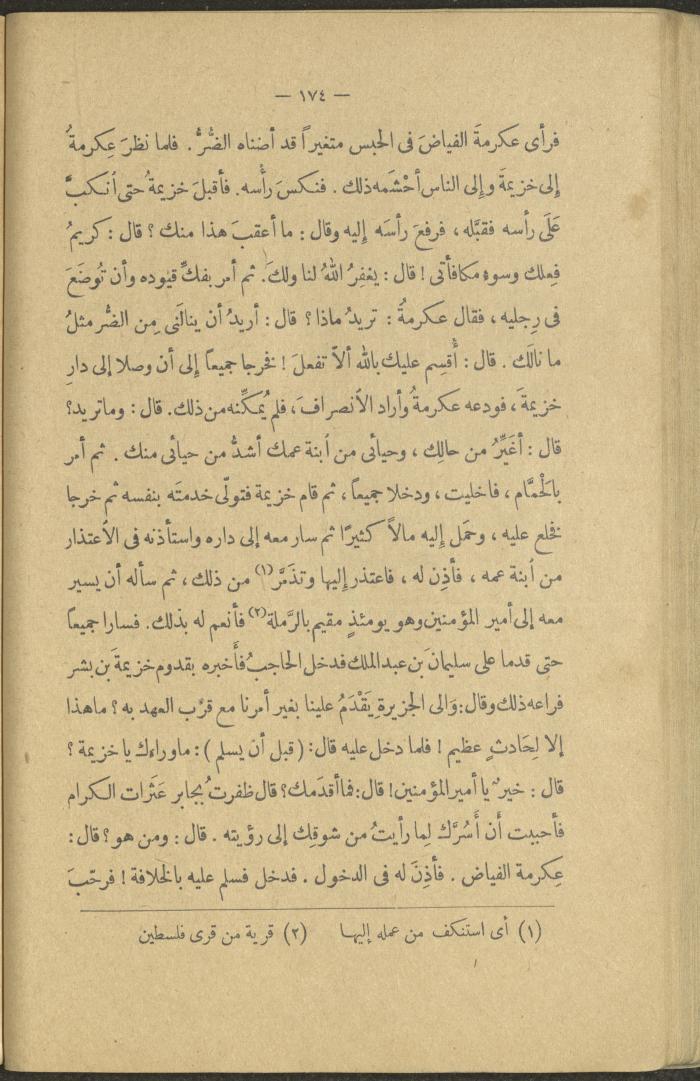 — ١٧٤ —
فرأى عكرمةَ الفياضَ فى الحبس متغيراً قد أضناه الضُّرُّ . فلما نظرَ عِكرمةُ
إلى خزيمةَ وإلى الناس أحْشَمه ذلك . فنكسَ رأْسه. فأقبلَ خزيمةُ حتى اُنكبَّ
عَلَى رأسه فقبَّله ، فرفعَ رأسَه إليه وقال : ما أعقبَ هذا منك ؟ قال : كريمُ
فِعلك وسوءِ مكافأتى ! قال : يغفِرُ اللهُ لنا ولكَ . ثم أمر بفكِّ قيوده وأن تُوضَعَ
فى رِجليه ، فقال عكرمةُ : تريدُ ماذا ؟ قال : أريدُ أن ينالَنى مِن الضُّر مثلُ
ما نالك . قال : أُقسِم عليك بالله ألاّ تفعلَ ! فخرجا جميعاً إلى أن وصلا إلى دارِ
خزيمةَ ، فودعه عكرمةُ وأراد الاُنصرافَ ، فلم يُمَكِّنه من ذلك. قال : وما تريد؟
قال : أغَيِّرُ من حالِك ، وحيائى من اُبنة عمك أشدُّ من حيائى منك . ثم أمر
بالْحَمَّام ، فاخليت ، ودخلا جميعاً ، ثم قام خزيمة فتولّى خدمتَه بنفسه ثم خرجا
فخلع عليه ، وحمَل إليه مالاً كثيرًا ثم سار معه إلى داره واستأذنه فى الاُعتذار
من اُبنة عمه ، فأذِن له ، فاعتذر إليها وتذَمَّر(١) من ذلك ، ثم سأله أن يسير
معه إلى أمير المؤمنين وهو يومئذٍ مقيم بالرَّملة(٢) فأنعم له بذلك. فسارا جميعاً
حتى قدما على سليمانَ بن عبد الملك فدخل الحاجبُ فأَخبره بقدوم خزيمةَ بن بشر
فراعه ذلك وقال: وَالى الجزيرةِ يَقْدَمُ علينا بغير أمرنا مع قُرْب العهد به ؟ ما هذا
إلا لِحَادثٍ عظيم ! فلما دخل عليه قال: (قبل أن يسلم) : ما وراءك يا خزيمة ؟
قال : خيرٌ يا أمير المؤمنين! قال: فما أقدَمك؟ قال ظفرتُ بجابر عَثَرات الكرام
فأحببت أَن أَسُرَّك لِما رأيتُ من شوقِك إلى رؤيته . قال : ومن هو ؟ قال :
عِكرمة الفياض . فأذِنَ له فى الدخول . فدخل فسلم عليه بالخلافة ! فرحّبَ
(١) أى استنكف من عمله إليها (٢) قرية من قرى فلسطين